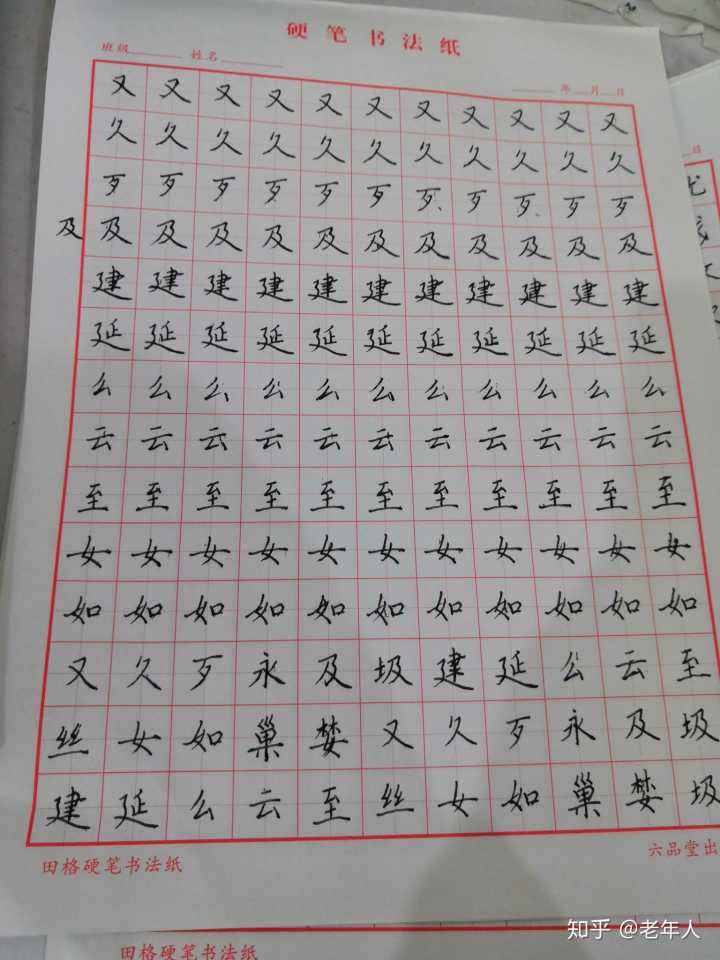 硬笔书法纸
班级 姓名
年 月 日
又又又又又又又又又又又
久久久久久久久久久久久
歹歹歹歹歹歹歹歹歹歹歹
及 及及及及及及及及及及及
建建建建建建建建建建建
延延延延延延延延延延延
么么么公么么么么么么么
云云云云云云云云云云云
至至至至至至至至至至至
女女女女女女女女女女女
如如如如如如如如如如如
又久歹永及圾建延公云至
丝女如巢婪又久歹永及圾
建延么云至丝女如巢婪圾
田格硬笔书法纸
六品堂出
田格硬笔书法纸
日
尤
知乎 @老年人